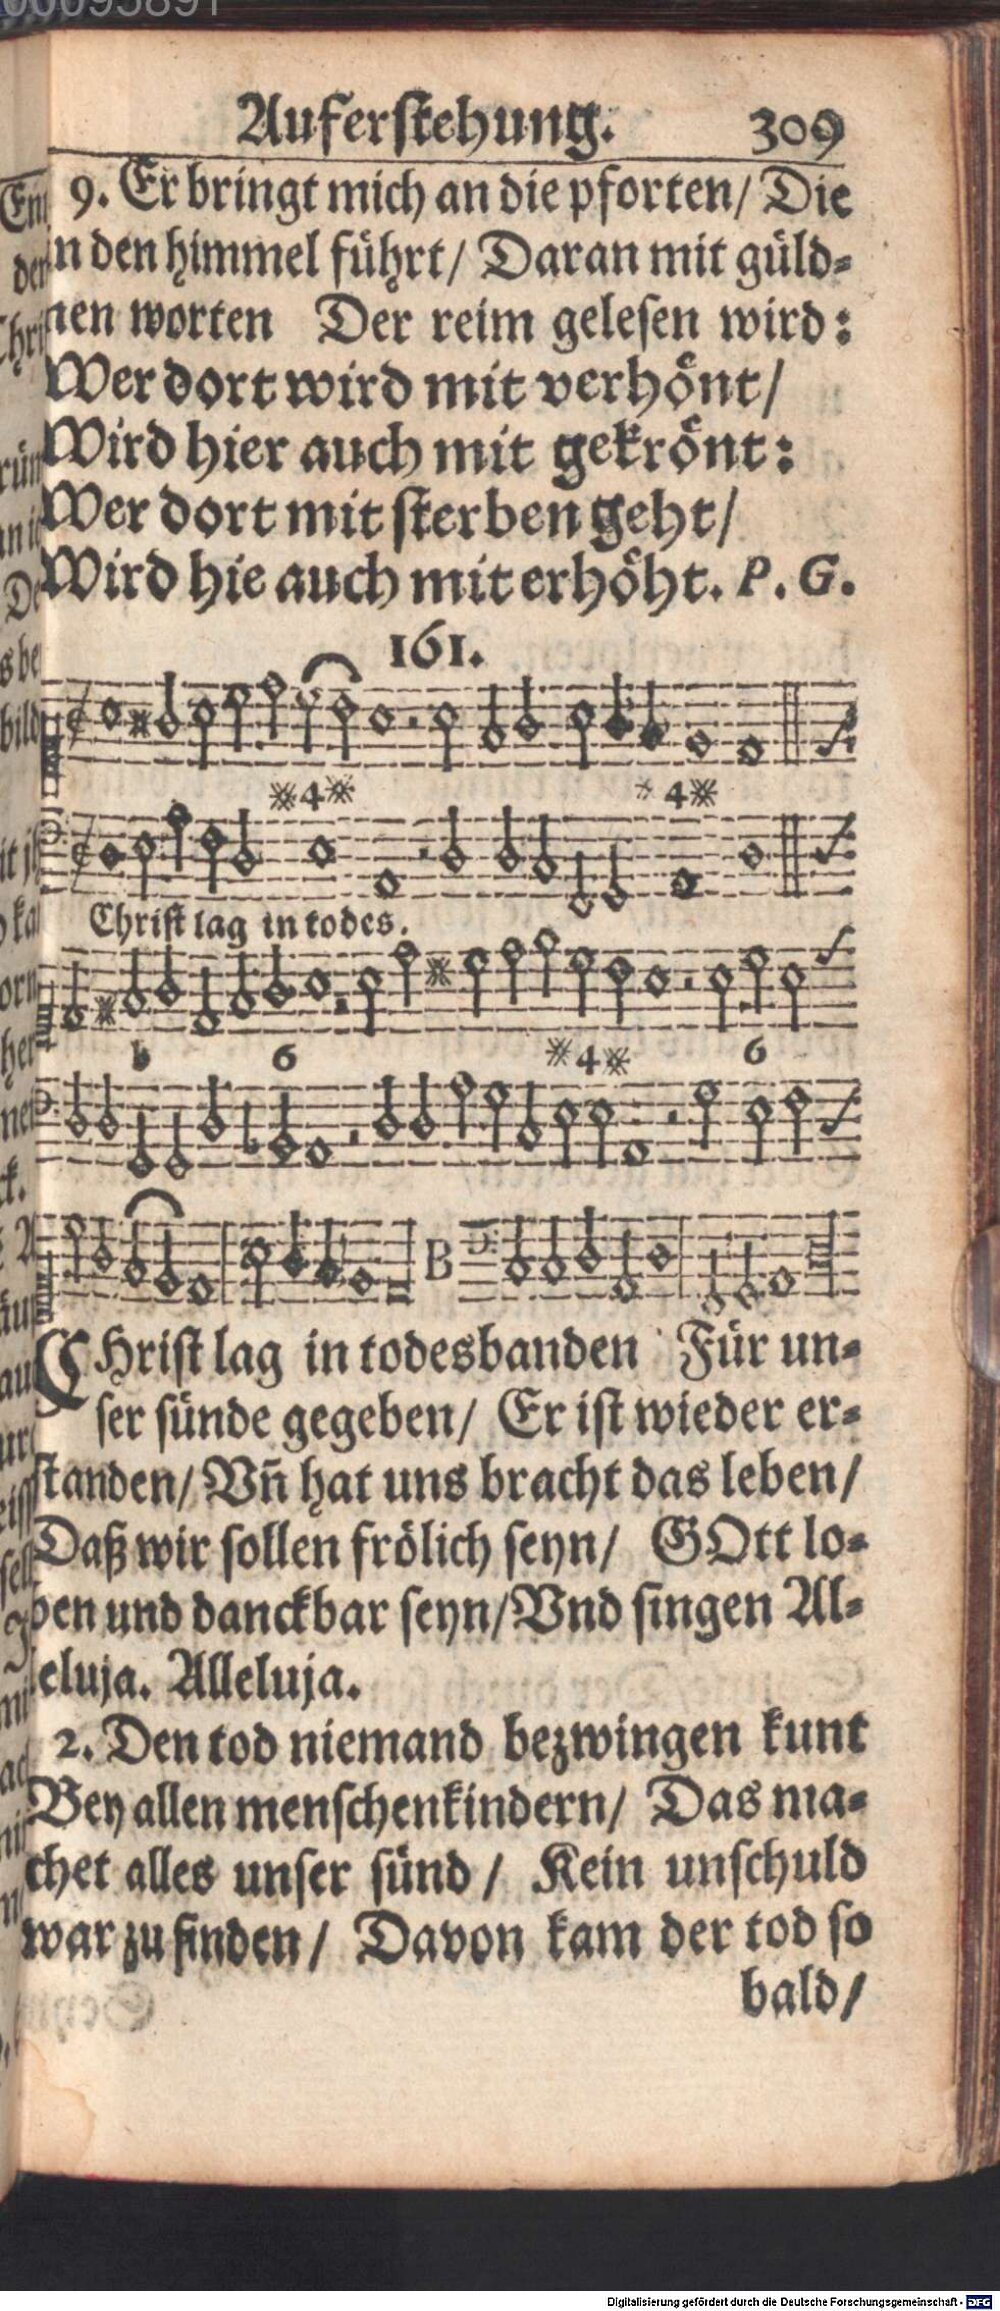 Auferſtehung. 309
9. Er bringt mich an die pforten/ Die
in den himmel führt/ Daran mit güld⸗
nen worten Der reim geleſen wird:
Wer dort wird mit verhönt/
Wird hier auch mit gekrönt:
Wer dort mit ſterben geht/
Wird hie auch mit erhöht. P. G.
161.
4
4
Chriſt lag in todes.
6
4
6
B
CHriſt lag in todesbanden Für un⸗
ſer ſünde gegeben/ Er iſt wieder er⸗
ſtanden/ Vn̄ hat uns bracht das leben/
Daß wir ſollen frölich ſeyn/ GOtt lo⸗
ben und danckbar ſeyn/ Vnd ſingen Al⸗
leluja. Alleluja.
2. Den tod niemand bezwingen kunt
Bey allen menſchenkindern/ Das ma⸗
chet alles unſer ſünd/ Kein unſchuld
war zu finden/ Davon kam der tod ſo
bald/
Digitalisierung gefördert durch die Deutsche Forschungsgemeinschaft - DFG